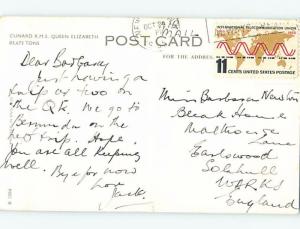 CUNARD R.M.S. QUEEN ELIZABETH
POST CARD
FOR THE ADDRESS
INTERNATIONAL TELECOMMUNICATION UNION
11 CENTS UNITED STATES POSTAGE
Dear
Just having a
trip or two on
the QE. We go to
Bermuda on the
next trip. Hope
you are all keeping
well. Bye for now
Love
Jack.
Miss Barbara Newton
Bleak House
Malthouse
Lane
Earlswood
Solihull
WARKS
England